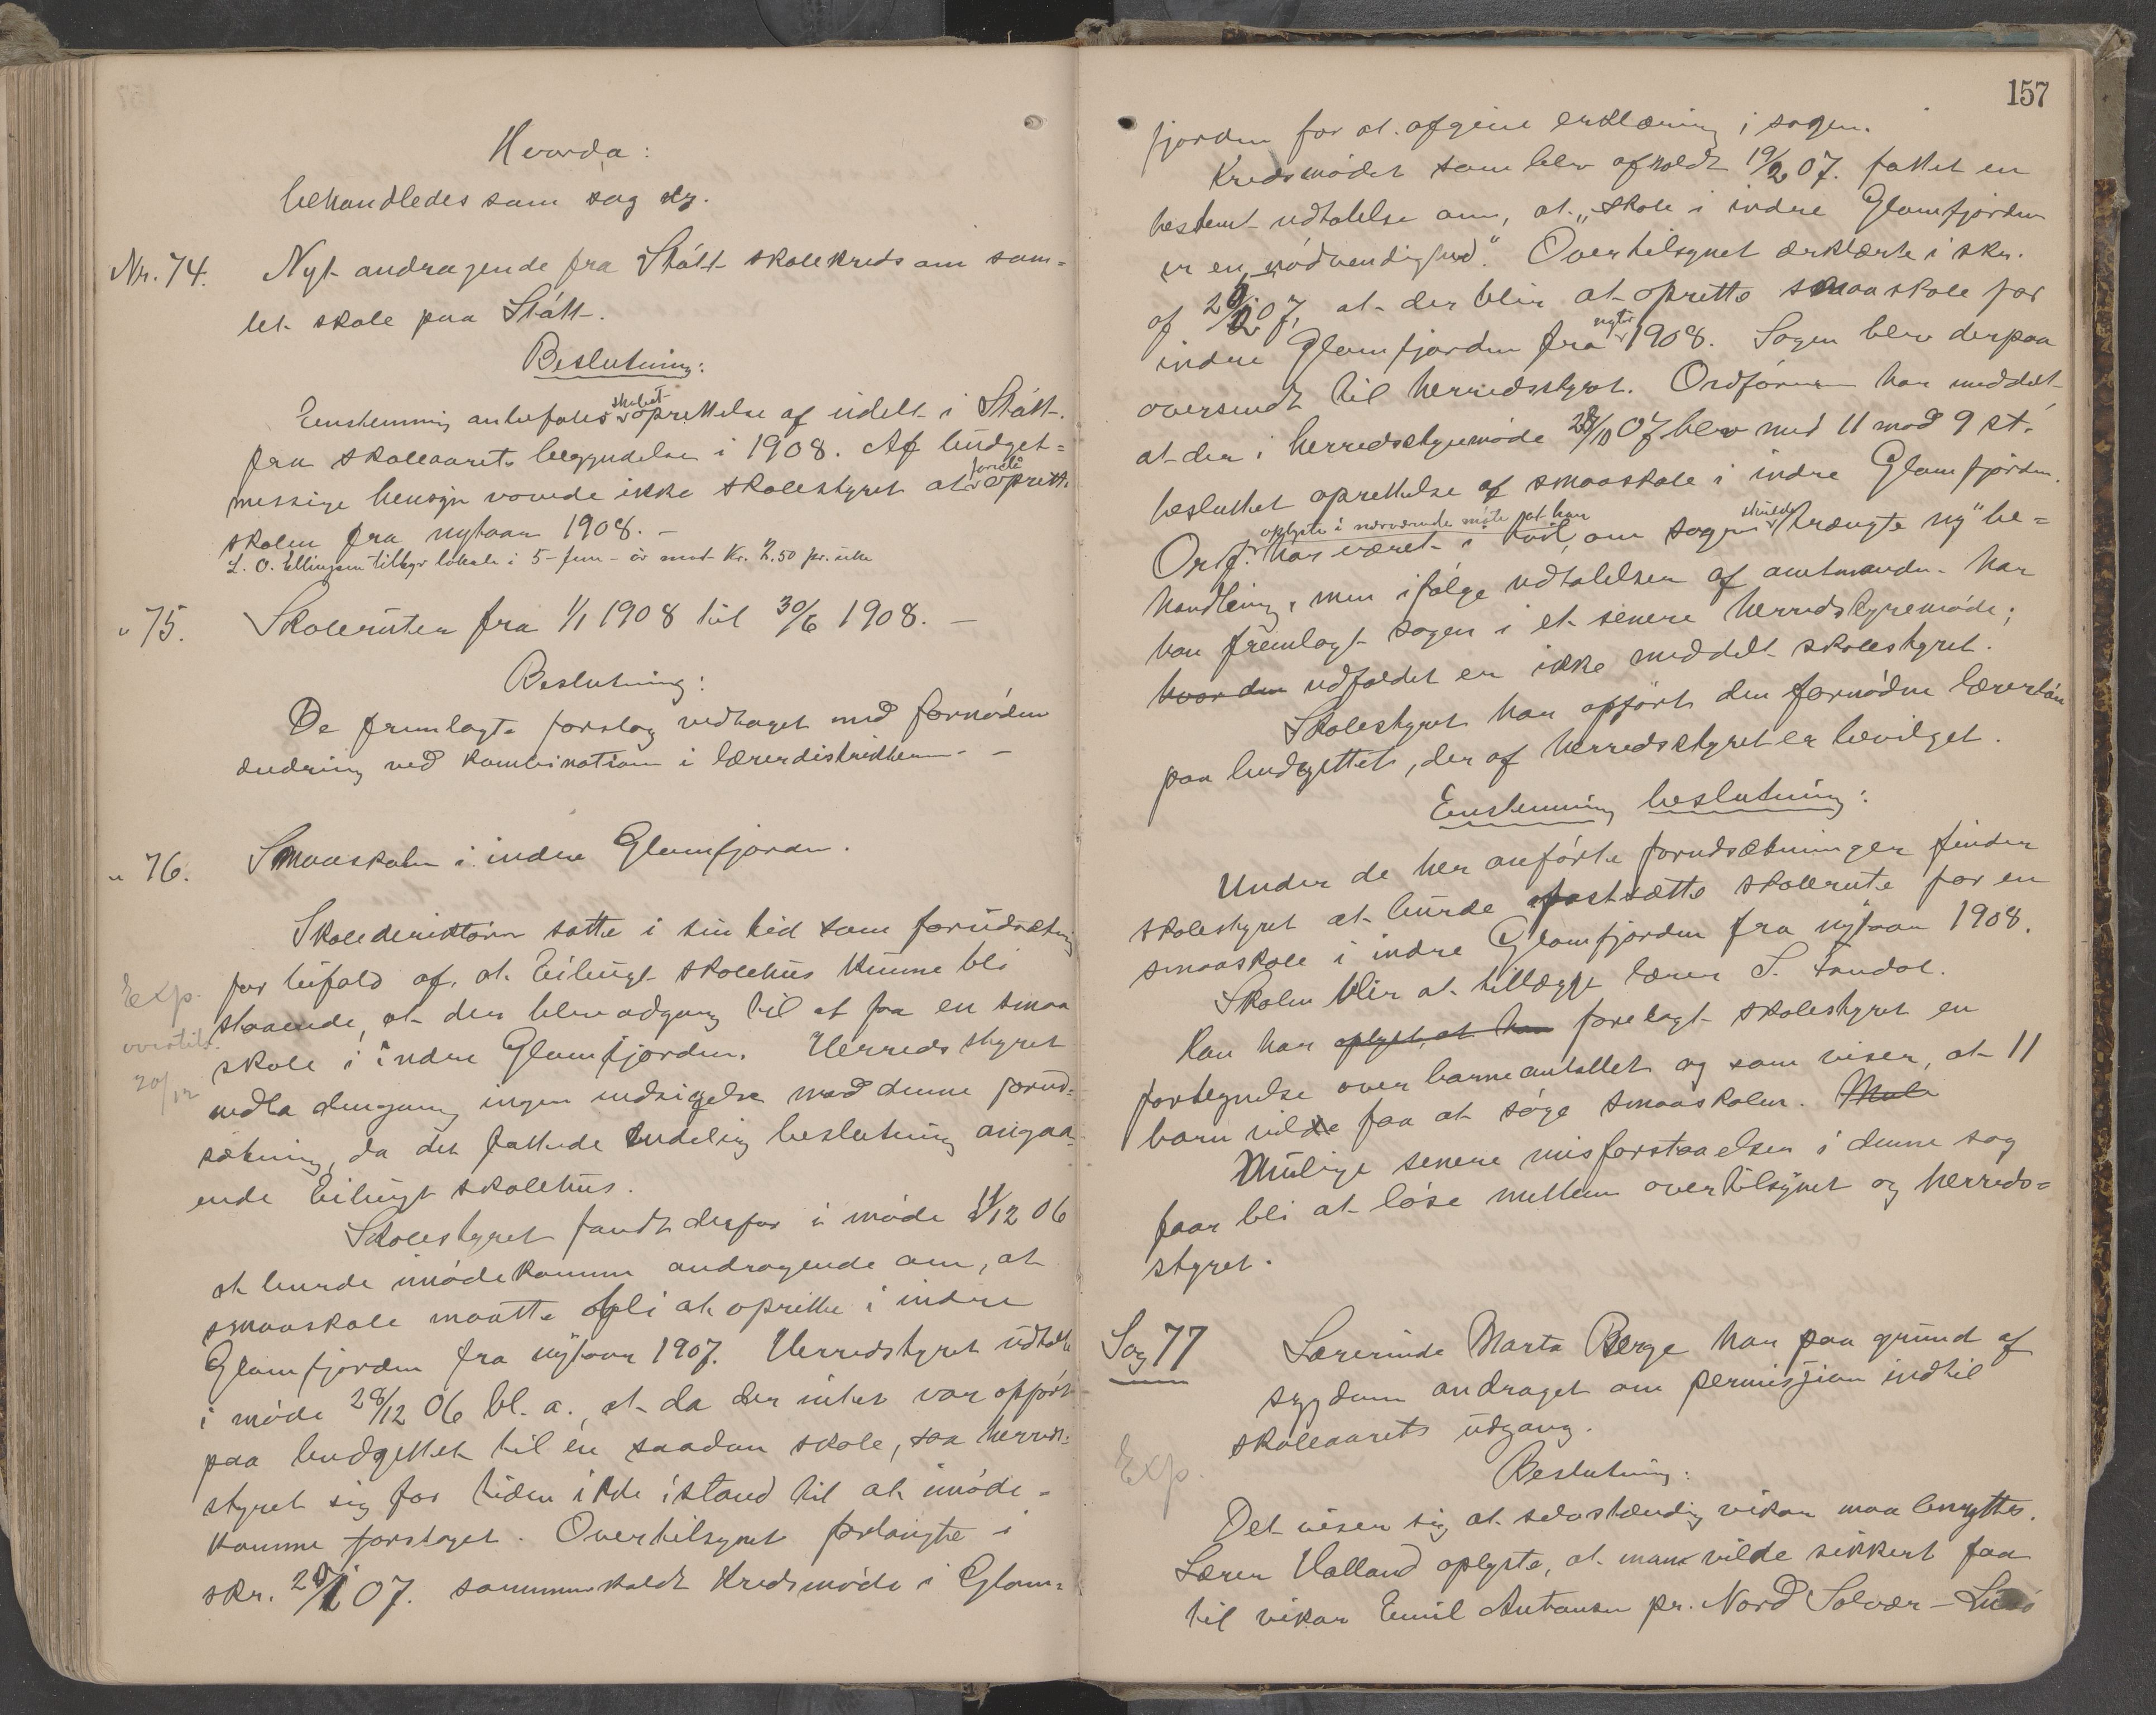 Hvorda:
behandledes som sag
Nr. 74. Nyt andragende fra Stått skolekreds om sam-
let skole paa Stått.
Beslutning:
Enstemmig anbefales oprettelse af udelt i Stått.
fra skoleaarets begyndelse i 1908. Af budget-
messige hensyn vovede ikke skolestyret at foreslå oprette
skolen fra nytaar 1908. –
L. O. Ellingsen tilbyr lokale i 5-fem-år mod Kr. 2.50 pr. uke
" 75. Skoleruten fra 1/1 1908 til 30/6 1908. –
Beslutning:
De fremlagte forslag vedtaget med fornøden
ændring ved kombination i lærerdistrikterne. –
" 76. Smaaskolen i indre Glomfjorden.
Skoledirektøren satte i sin tid som forudsætning
Exp. for bifald af, at Eilingt skolehus kunne bli
staaende, at der blev adgang til at faa en smaa
overtils.
skole i indre Glomfjorden. Herredsstyret
20/12
nedla dengang ingen indsigelse mod denne forud-
sætning, da det fattede endelig beslutning angaa-
ende Eilingt skolehus.
Skolestyret fandt derfor i møde 11/12 06
at burde imødekomme andragende om, at
smaaskole maatte bli at oprette i indre
Glomfjorden fra nytaar 1907. Herredstyret udtalte
i møde 28/12 06 bl. a., at da der intet var opført
paa budgettet til en saadan skole, saa herreds-
styret sig for tiden ikke istand til at imøde-
komme forslaget. Overtilsynet forlangte i
skr. 20/1 07. sammenkaldt kredsmøde i Glom-
157
fjorden for at afgive erklæring i sagen.
Kredsmødet som blev afholdt 19/2 07. fattet en
bestemt udtalelse om, at „skole i indre Glomfjorden
er en nødvendighed." Overtilsynet erklærte i skr.
af 20/2 07, at der blir at oprette smaaskole for
indre Glomfjorden fra nytr 1908. Sagen blev derpaa
oversendt til herredsstyret. Ordføreren har meddelt
at der i herredsstyremøde 28/10 07 blev med 11 mod 9 st.
besluttet oprettelse af smaaskole i indre Glomfjorden.
oplyste i nærværende møte at han
Ordf. har været i tvil, om sagen skulde trængte ny be-
handling, men ifølge udtalelser af amtmanden har
han fremlagt sagen i et senere herredstyremøde;
hvor den udfaldet er ikke meddelt skolestyret.
Skolestyret har opført den fornødne lærerløn
paa budgettet, der af herredsstyret er bevilget.
Enstemmig beslutning:
Under de her anførte forudsætninger finder
skolestyret at burde fastsætte skolerute for en
smaaskole i indre Glomfjorden fra nytaar 1908.
Skolen blir at tillægge lærer S. Sandal.
Han har oplyst, at han forelagt skolestyret en
fortegnelse over barneantallet og som viser, at 11
barn vilde faa at søge smaaskolen. Mule
Mulige senere misforstaaelser i denne sag
faar bli at løse mellem overtilsynet og herreds-
styret.
Sag 77 Lærerinde Marta Berge har paa grund af
sygdom andraget om permisjion indtil
skoleaarets udgang.
Exp. Beslutning:
Det viser sig at selvstændig vikar maa benyttes.
Lærer Halland oplyste, at man vilde sikkert faa
til vikar Emil Antonsen pr. Nord Solvær – Lurø